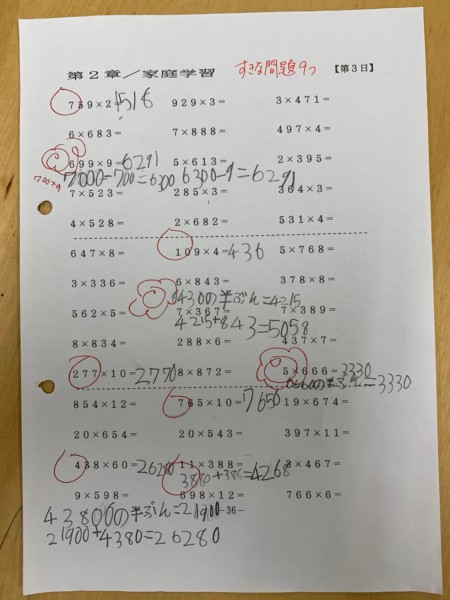 第2章/家庭学習 すきな問題9つ 【第3日】
759×2=1518 929×3= 3×471=
6×683= 7×888= 497×4=
699×9=6291 5×613= 2×395=
700×9 7000-700=6300 6300-9=6291
7×523= 285×3= 364×3=
4×528= 2×682= 531×4=
647×8= 109×4=436 5×768=
3×336= 6×843= 378×8=
8430の半ぶん=4215
562×5= 7×367= 7×389=
4215+843=5058
8×834= 288×6= 437×7=
277×10=2770 8×872= 5×666=3330
6660の半ぶん=3330
854×12= 765×10=7650 19×674=
20×654= 20×543= 397×11=
438×60=26280 11×388= 3×467=
3880+388=4268
9×598= 698×12= 766×6=
43800の半ぶん=21900
-36-
21900+4380=26280